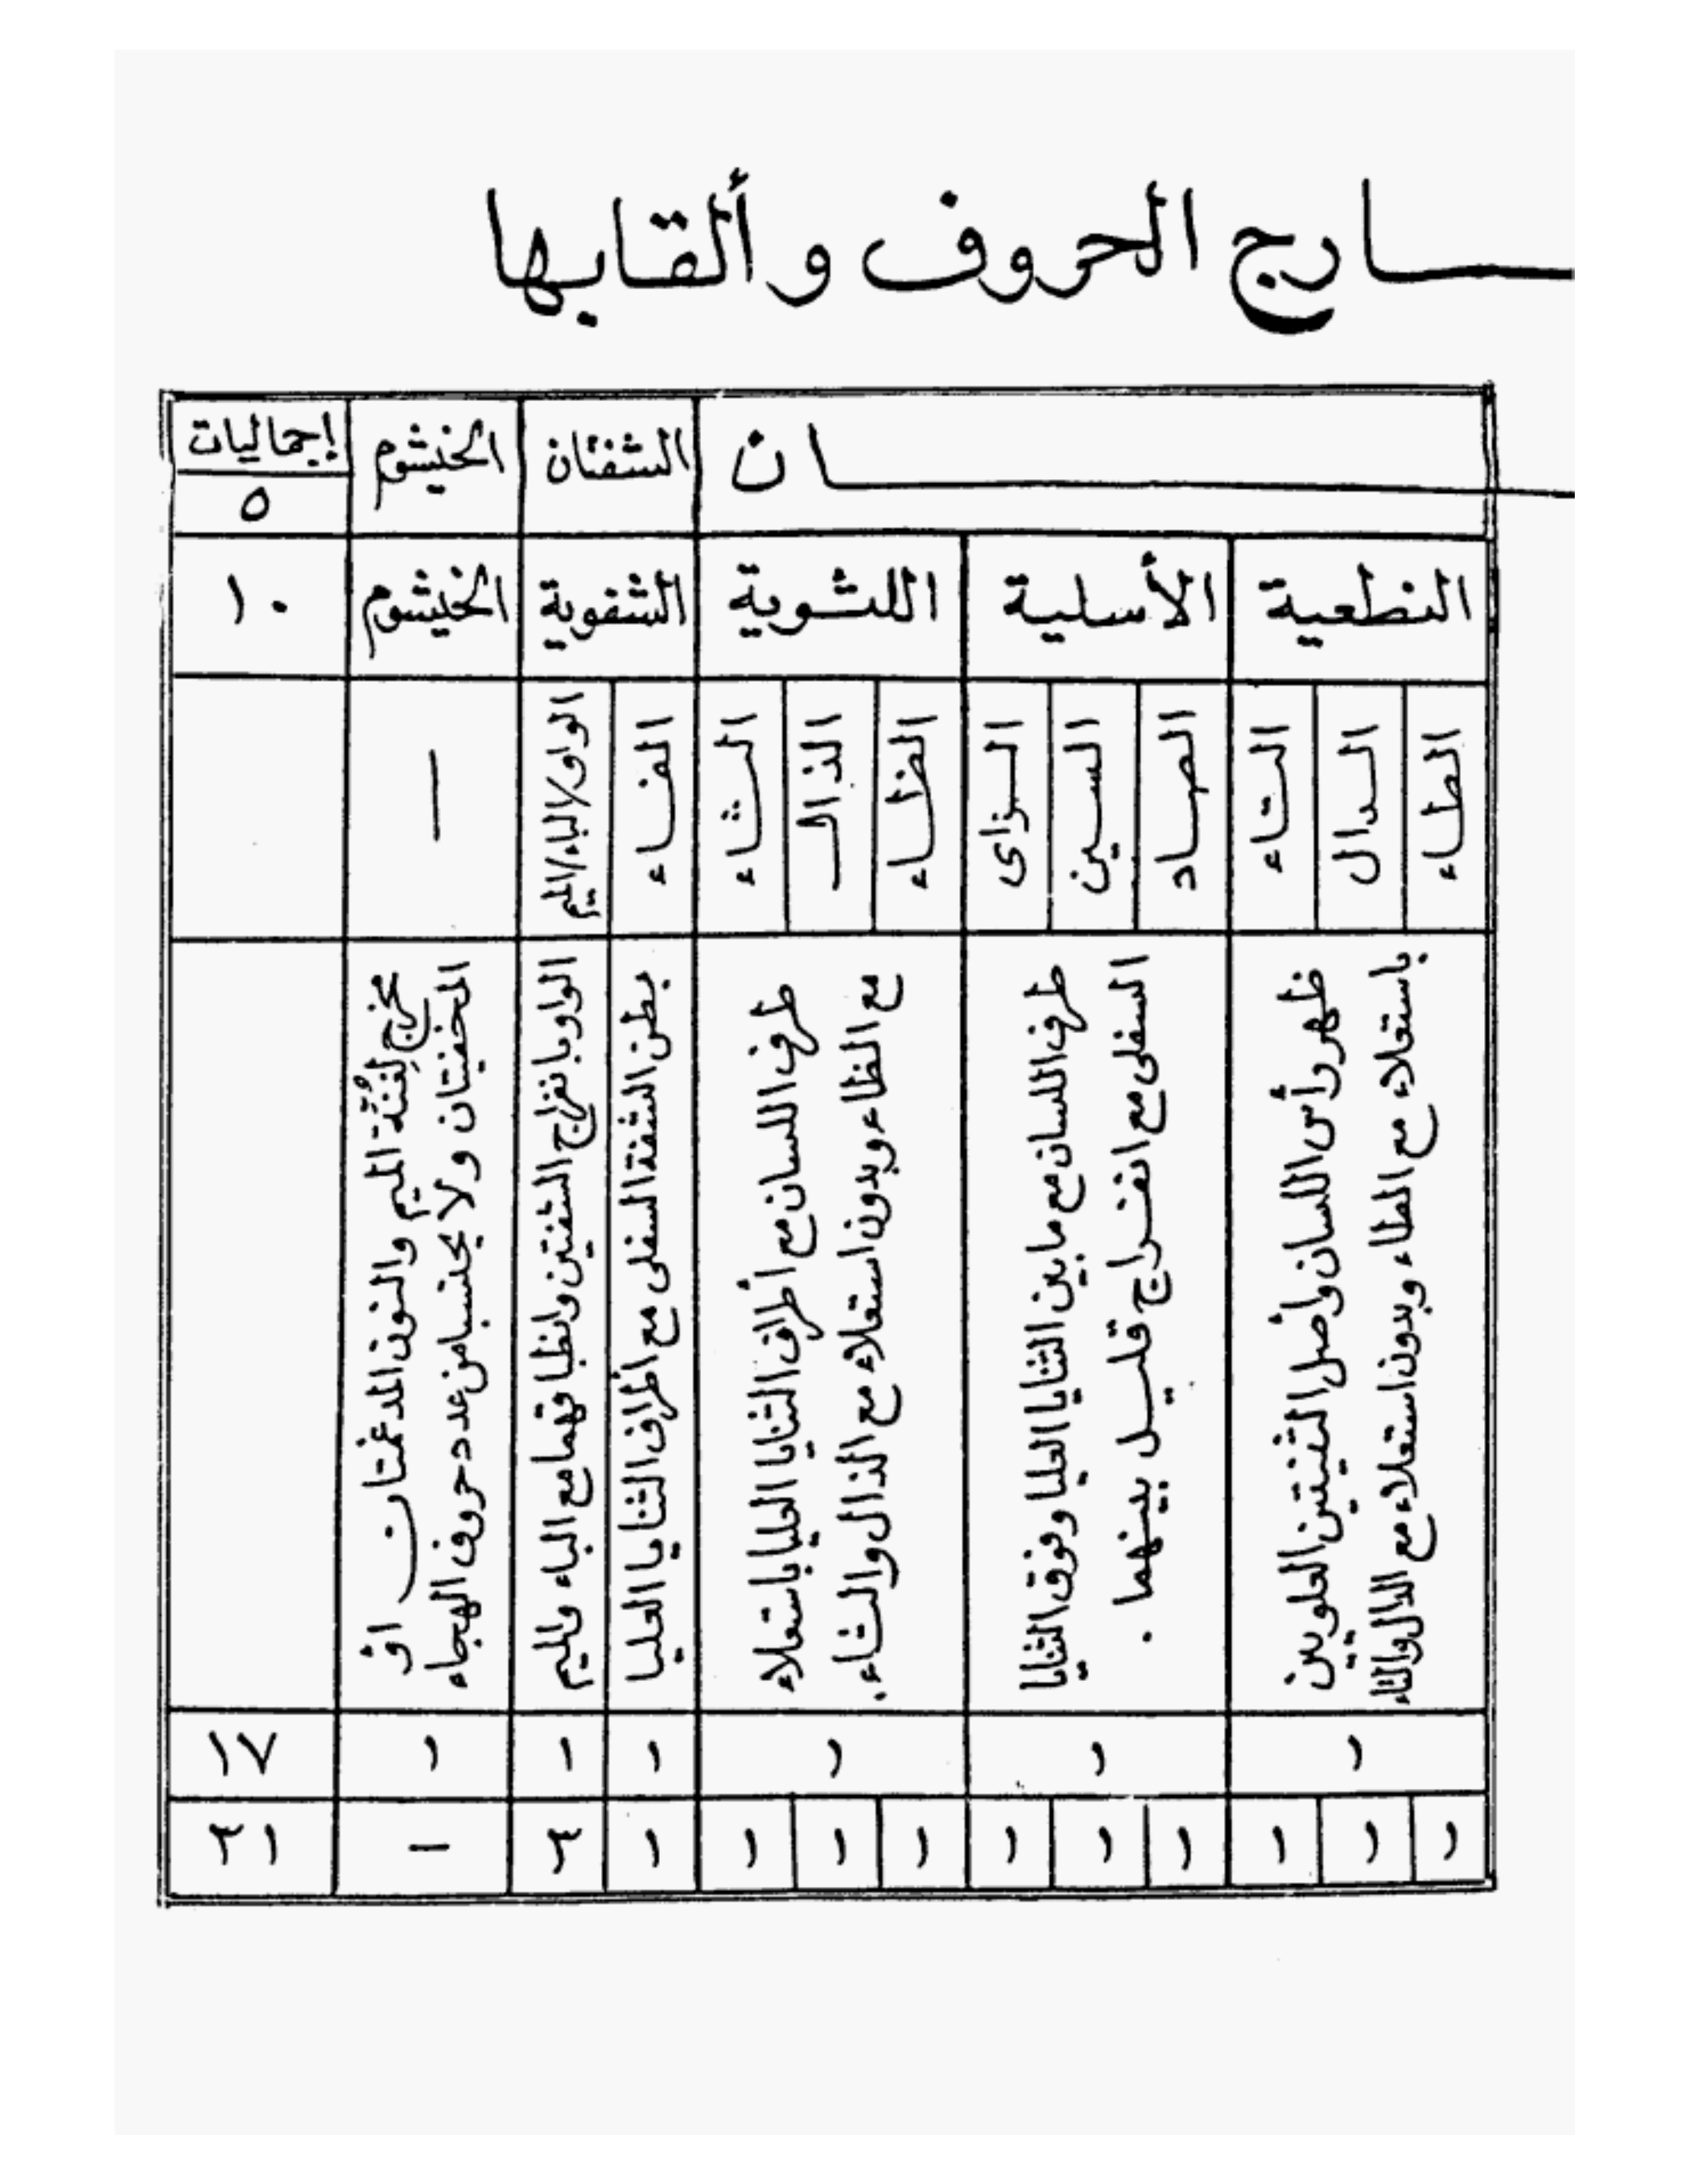 ـارج الحروف وألقابها
ـان الشفتان الخيشوم إجماليات
٥
النطعية الأسلية اللثوية الشفوية الخيشوم ١٠
الطاء الدال التاء الصاد السين الزاى الظاء الذال الثاء الفاء الواو/الباء/الميم —
ظهر رأس اللسان وأصل الثنيتين العلويين
باستعلاء مع الطاء وبدون استعلاء مع الدال والتاء
طرف اللسان مع ما بين الثنايا العليا وفوق الثنايا
السفلى مع انفراج قليل بينهما .
طرف اللسان مع أطراف الثنايا العليا باستعلاء
مع الظاء وبدون استعلاء مع الذال والثاء .
بطن الشفة السفلى مع أطراف الثنايا العليا
الواو بانفراج الشفتين وانطباقهما مع الباء والميم
مخرج لغُنَّة الميم والنون المدغمتان او
المخفيتان ولا يحتسبا من عدد حروف الهجاء
١ ١ ١ ١ ١ ١ ١٧
١ ١ ١ ١ ١ ١ ١ ١ ١ ١ ٣ — ٣١